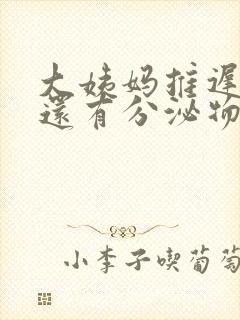 大姨妈推遲
還有分泌物
小李子喫葡萄